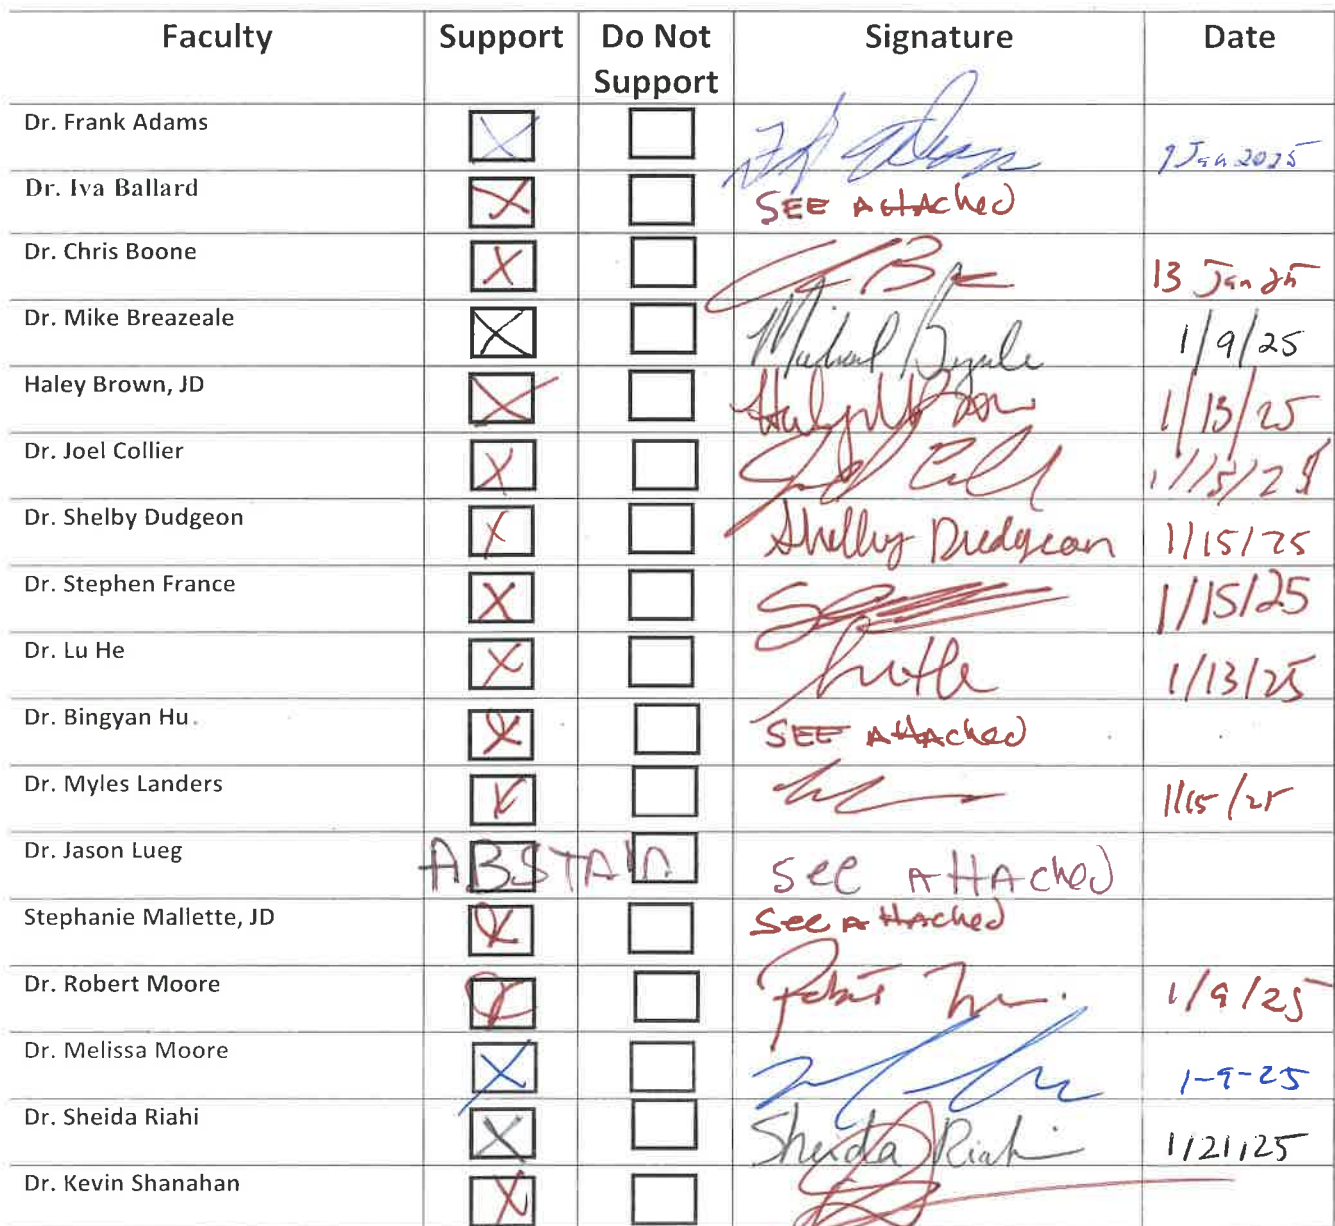 Faculty Support Do Not Support Signature Date
Dr. Frank Adams 9 Jan 2025
Dr. Iva Ballard SEE AttAched
Dr. Chris Boone 13 Jan 25
Dr. Mike Breazeale 1/9/25
Haley Brown, JD 1/13/25
Dr. Joel Collier 1/15/25
Dr. Shelby Dudgeon Shelby Dudgeon 1/15/25
Dr. Stephen France 1/15/25
Dr. Lu He Lu He 1/13/25
Dr. Bingyan Hu SEE AttAched
Dr. Myles Landers 1/15/25
Dr. Jason Lueg ABSTAIN See AttAched
Stephanie Mallette, JD See AttAched
Dr. Robert Moore 1/9/25
Dr. Melissa Moore 1-9-25
Dr. Sheida Riahi Sheida Riahi 1/21/25
Dr. Kevin Shanahan